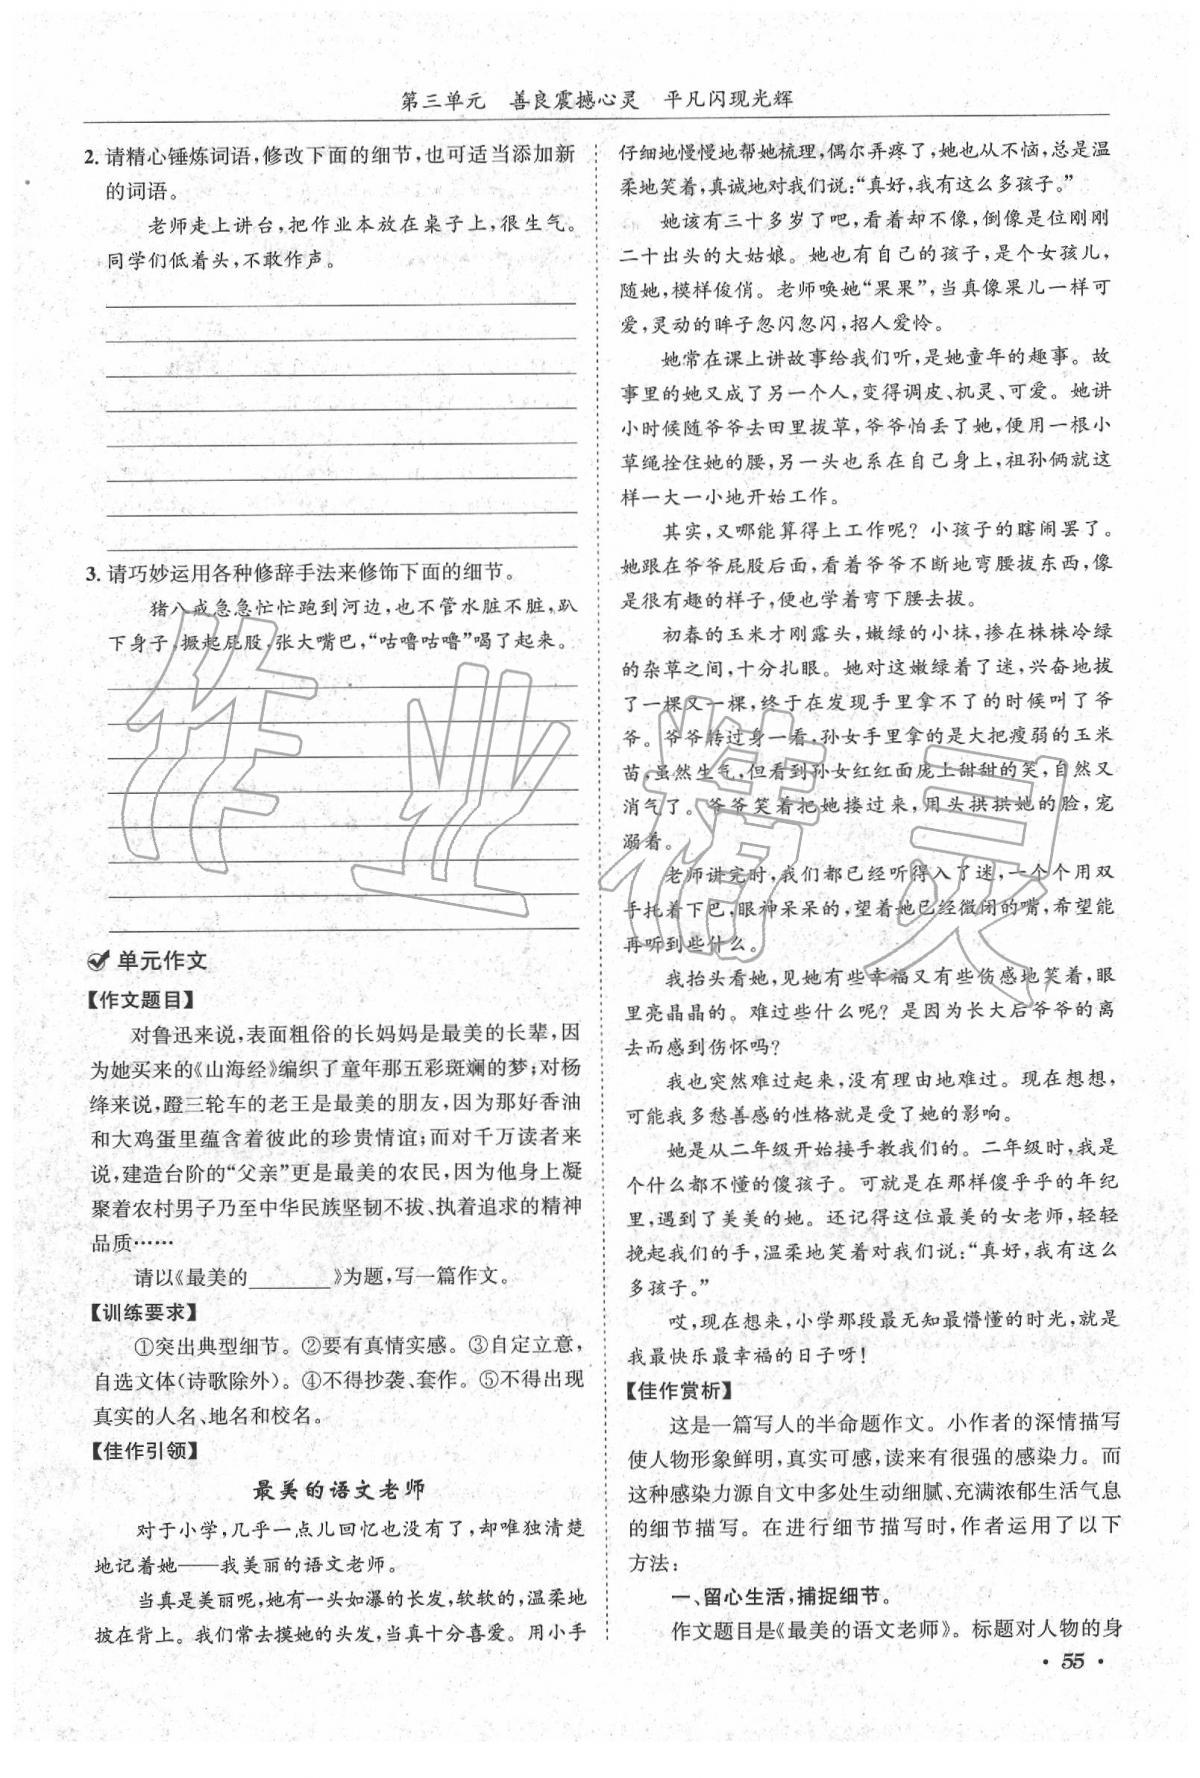 第三单元　善良震撼心灵　平凡闪现光辉
2. 请精心锤炼词语,修改下面的细节,也可适当添加新
的词语。
老师走上讲台,把作业本放在桌子上,很生气。
同学们低着头,不敢作声。
3. 请巧妙运用各种修辞手法来修饰下面的细节。
猪八戒急急忙忙跑到河边,也不管水脏不脏,趴
下身子,撅起屁股,张大嘴巴,“咕噜咕噜”喝了起来。
单元作文
【作文题目】
对鲁迅来说,表面粗俗的长妈妈是最美的长辈,因
为她买来的《山海经》编织了童年那五彩斑斓的梦;对杨
绛来说,蹬三轮车的老王是最美的朋友,因为那好香油
和大鸡蛋里蕴含着彼此的珍贵情谊;而对千万读者来
说,建造台阶的“父亲”更是最美的农民,因为他身上凝
聚着农村男子乃至中华民族坚韧不拔、执着追求的精神
品质……
请以《最美的________》为题,写一篇作文。
【训练要求】
①突出典型细节。②要有真情实感。③自定立意,
自选文体(诗歌除外)。④不得抄袭、套作。⑤不得出现
真实的人名、地名和校名。
【佳作引领】
最美的语文老师
对于小学,几乎一点儿回忆也没有了,却唯独清楚
地记着她——我美丽的语文老师。
当真是美丽呢,她有一头如瀑的长发,软软的,温柔地
披在背上。我们常去摸她的头发,当真十分喜爱。用小手
仔细地慢慢地帮她梳理,偶尔弄疼了,她也从不恼,总是温
柔地笑着,真诚地对我们说:“真好,我有这么多孩子。”
她该有三十多岁了吧,看着却不像,倒像是位刚刚
二十出头的大姑娘。她也有自己的孩子,是个女孩儿,
随她,模样俊俏。老师唤她“果果”,当真像果儿一样可
爱,灵动的眸子忽闪忽闪,招人爱怜。
她常在课上讲故事给我们听,是她童年的趣事。故
事里的她又成了另一个人,变得调皮、机灵、可爱。她讲
小时候随爷爷去田里拔草,爷爷怕丢了她,便用一根小
草绳拴住她的腰,另一头也系在自己身上,祖孙俩就这
样一大一小地开始工作。
其实,又哪能算得上工作呢?小孩子的瞎闹罢了。
她跟在爷爷屁股后面,看着爷爷不断地弯腰拔东西,像
是很有趣的样子,便也学着弯下腰去拔。
初春的玉米才刚露头,嫩绿的小抹,掺在株株冷绿
的杂草之间,十分扎眼。她对这嫩绿着了迷,兴奋地拔
了一棵又一棵,终于在发现手里拿不了的时候叫了爷
爷。爷爷转过身一看,孙女手里拿的是大把瘦弱的玉米
苗,虽然生气,但看到孙女红红面庞上甜甜的笑,自然又
消气了。爷爷笑着把她搂过来,用头拱拱她的脸,宠
溺着。
老师讲完时,我们都已经听得入了迷,一个个用双
手托着下巴,眼神呆呆的,望着她已经微闭的嘴,希望能
再听到些什么。
我抬头看她,见她有些幸福又有些伤感地笑着,眼
里亮晶晶的。难过些什么呢?是因为长大后爷爷的离
去而感到伤怀吗?
我也突然难过起来,没有理由地难过。现在想想,
可能我多愁善感的性格就是受了她的影响。
她是从二年级开始接手教我们的。二年级时,我是
个什么都不懂的傻孩子。可就是在那样傻乎乎的年纪
里,遇到了美美的她。还记得这位最美的女老师,轻轻
挽起我们的手,温柔地笑着对我们说:“真好,我有这么
多孩子。”
哎,现在想来,小学那段最无知最懵懂的时光,就是
我最快乐最幸福的日子呀!
【佳作赏析】
这是一篇写人的半命题作文。小作者的深情描写
使人物形象鲜明,真实可感,读来有很强的感染力。而
这种感染力源自文中多处生动细腻、充满浓郁生活气息
的细节描写。在进行细节描写时,作者运用了以下
方法:
一、留心生活,捕捉细节。
作文题目是《最美的语文老师》。标题对人物的身
· 55 ·
作业精灵